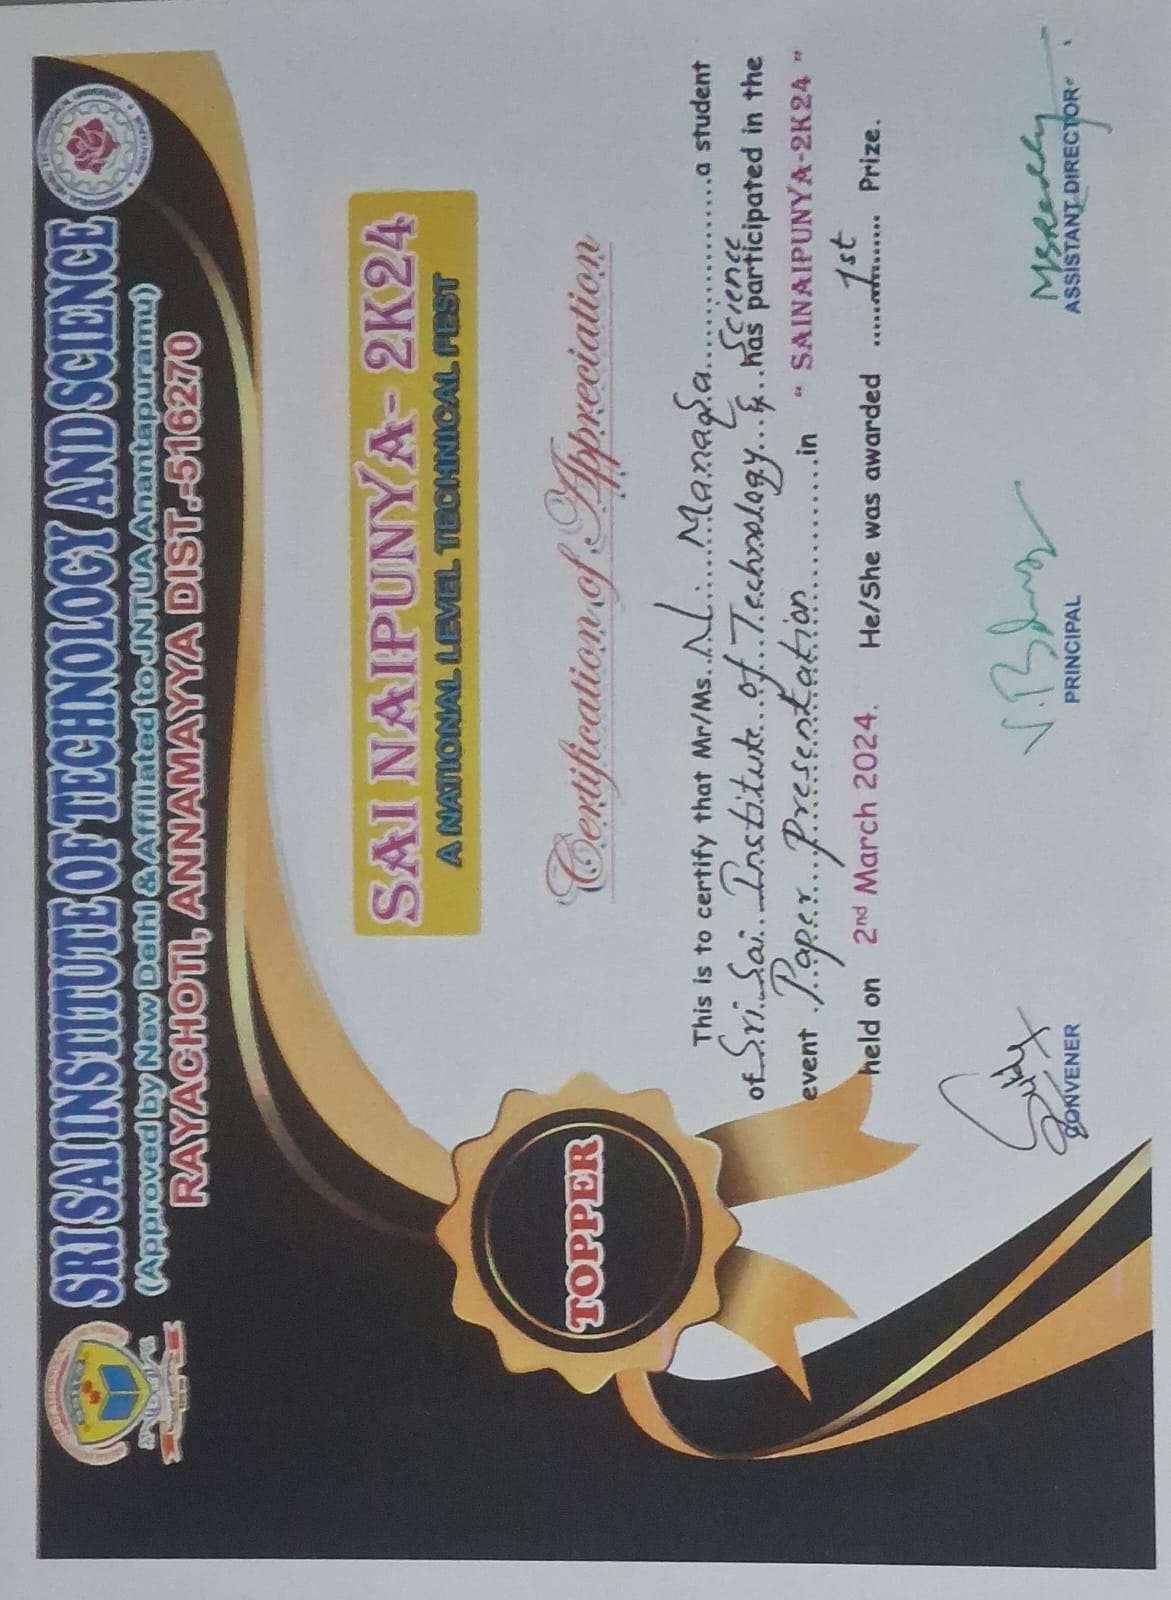 SRI SAI INSTITUTE OF TECHNOLOGY AND SCIENCE
(Approved by New Delhi & Affiliated to JNTUA Anantapuramu)
RAYACHOTI, ANNAMAYYA DIST.-516270
SAI NAIPUNYA- 2K24
A NATIONAL LEVEL TECHNICAL FEST
TOPPER
Certification of Appreciation
This is to certify that Mr/Ms. N. Manasa a student
of Sri Sai Institute of Technology & Science has participated in the
event Paper Presentation in " SAINAIPUNYA-2K24 "
held on 2nd March 2024. He/She was awarded 1st Prize.
MSReddy
CONVENER PRINCIPAL ASSISTANT DIRECTOR